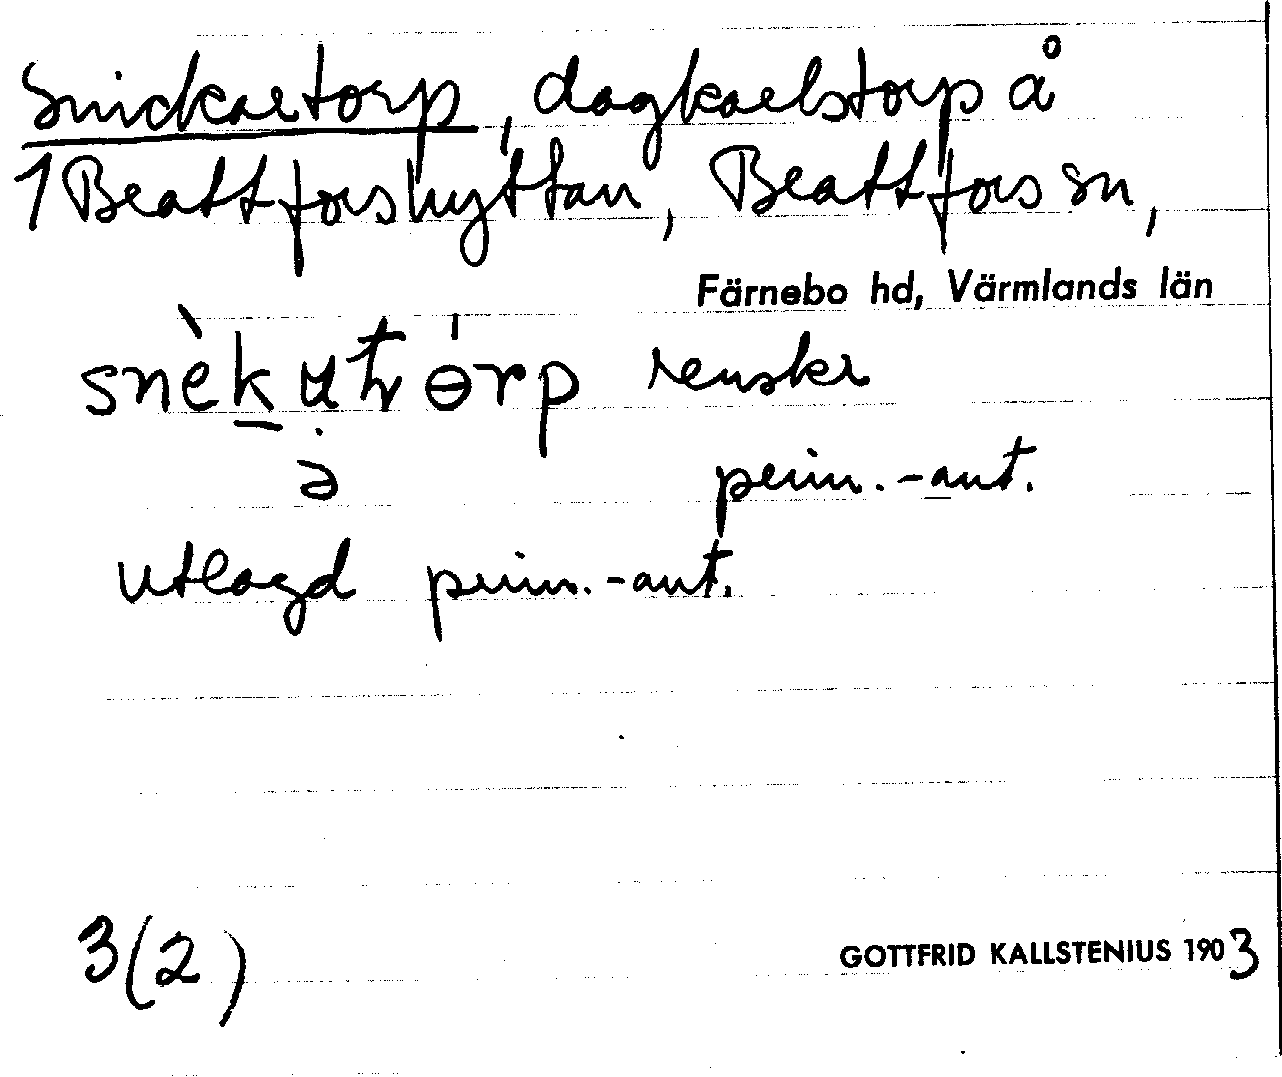 Snickartorp, dagkarlstorp å
1 Beattforshyttan, Beattfors sn,
Färnebo hd, Värmlands län
renskr
ə perm.-ant.
utlagd prim.-ant.
3(2) GOTTFRID KALLSTENIUS 1903